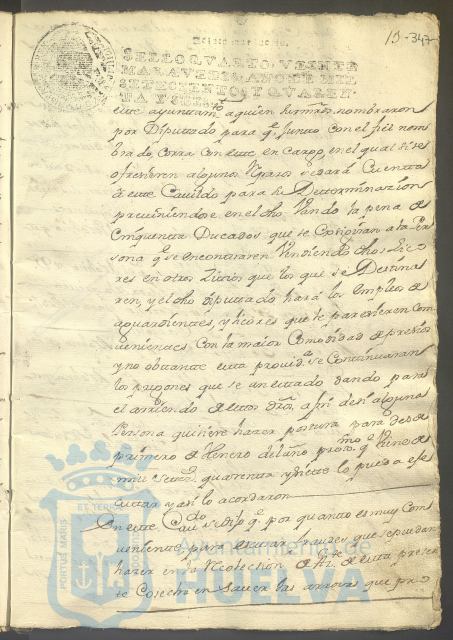 15-347
SELLO QVARTO, VEINTE
MARAVEDIS, AÑO DE MIL
SETECIENTOS Y QVAREN-
TA Y SEIS.
este ayuntamto aquien hizieron nombraron
por Diputado para q. Junto con el fiel nom
brado, corra con este encargo, en el qual si se
ofrezieren algunos reparos se dará Cuenta
a este Cavildo para su Determinazion
previniendose en el dho Vando la pena de
Cinquenta Ducados que se Exsigirán a la Per
sona qe se encontraren Vendiendo dhos Lico
res en otros sitios que los que se Destina
ren, y el dho Diputado hará los empleos de
aguardientes, y licores que le parezieren com
benientes con la maior Comodidad de prezios
y no obstante esta providª se Continuaran
los pregones que se an estado dando para
el arriendo de estos dros, a fin de si alguna
Persona quisiere hazer postura para desde
primero de Henero del año proximo q. Viene de
mil setezs quarenta y siete lo pueda efe
cuttar y asi lo acordaron
En este Cavdo se dijo q. por quanto es muy Com
beniente para evitar fraudes que se puedan
hazer en la Recoleczion de de esta presen
te Cosecha en Saver las arrovas que pro
Ayuntamiento de
HUELVA
PORTUS MARIS
ET TERRAE